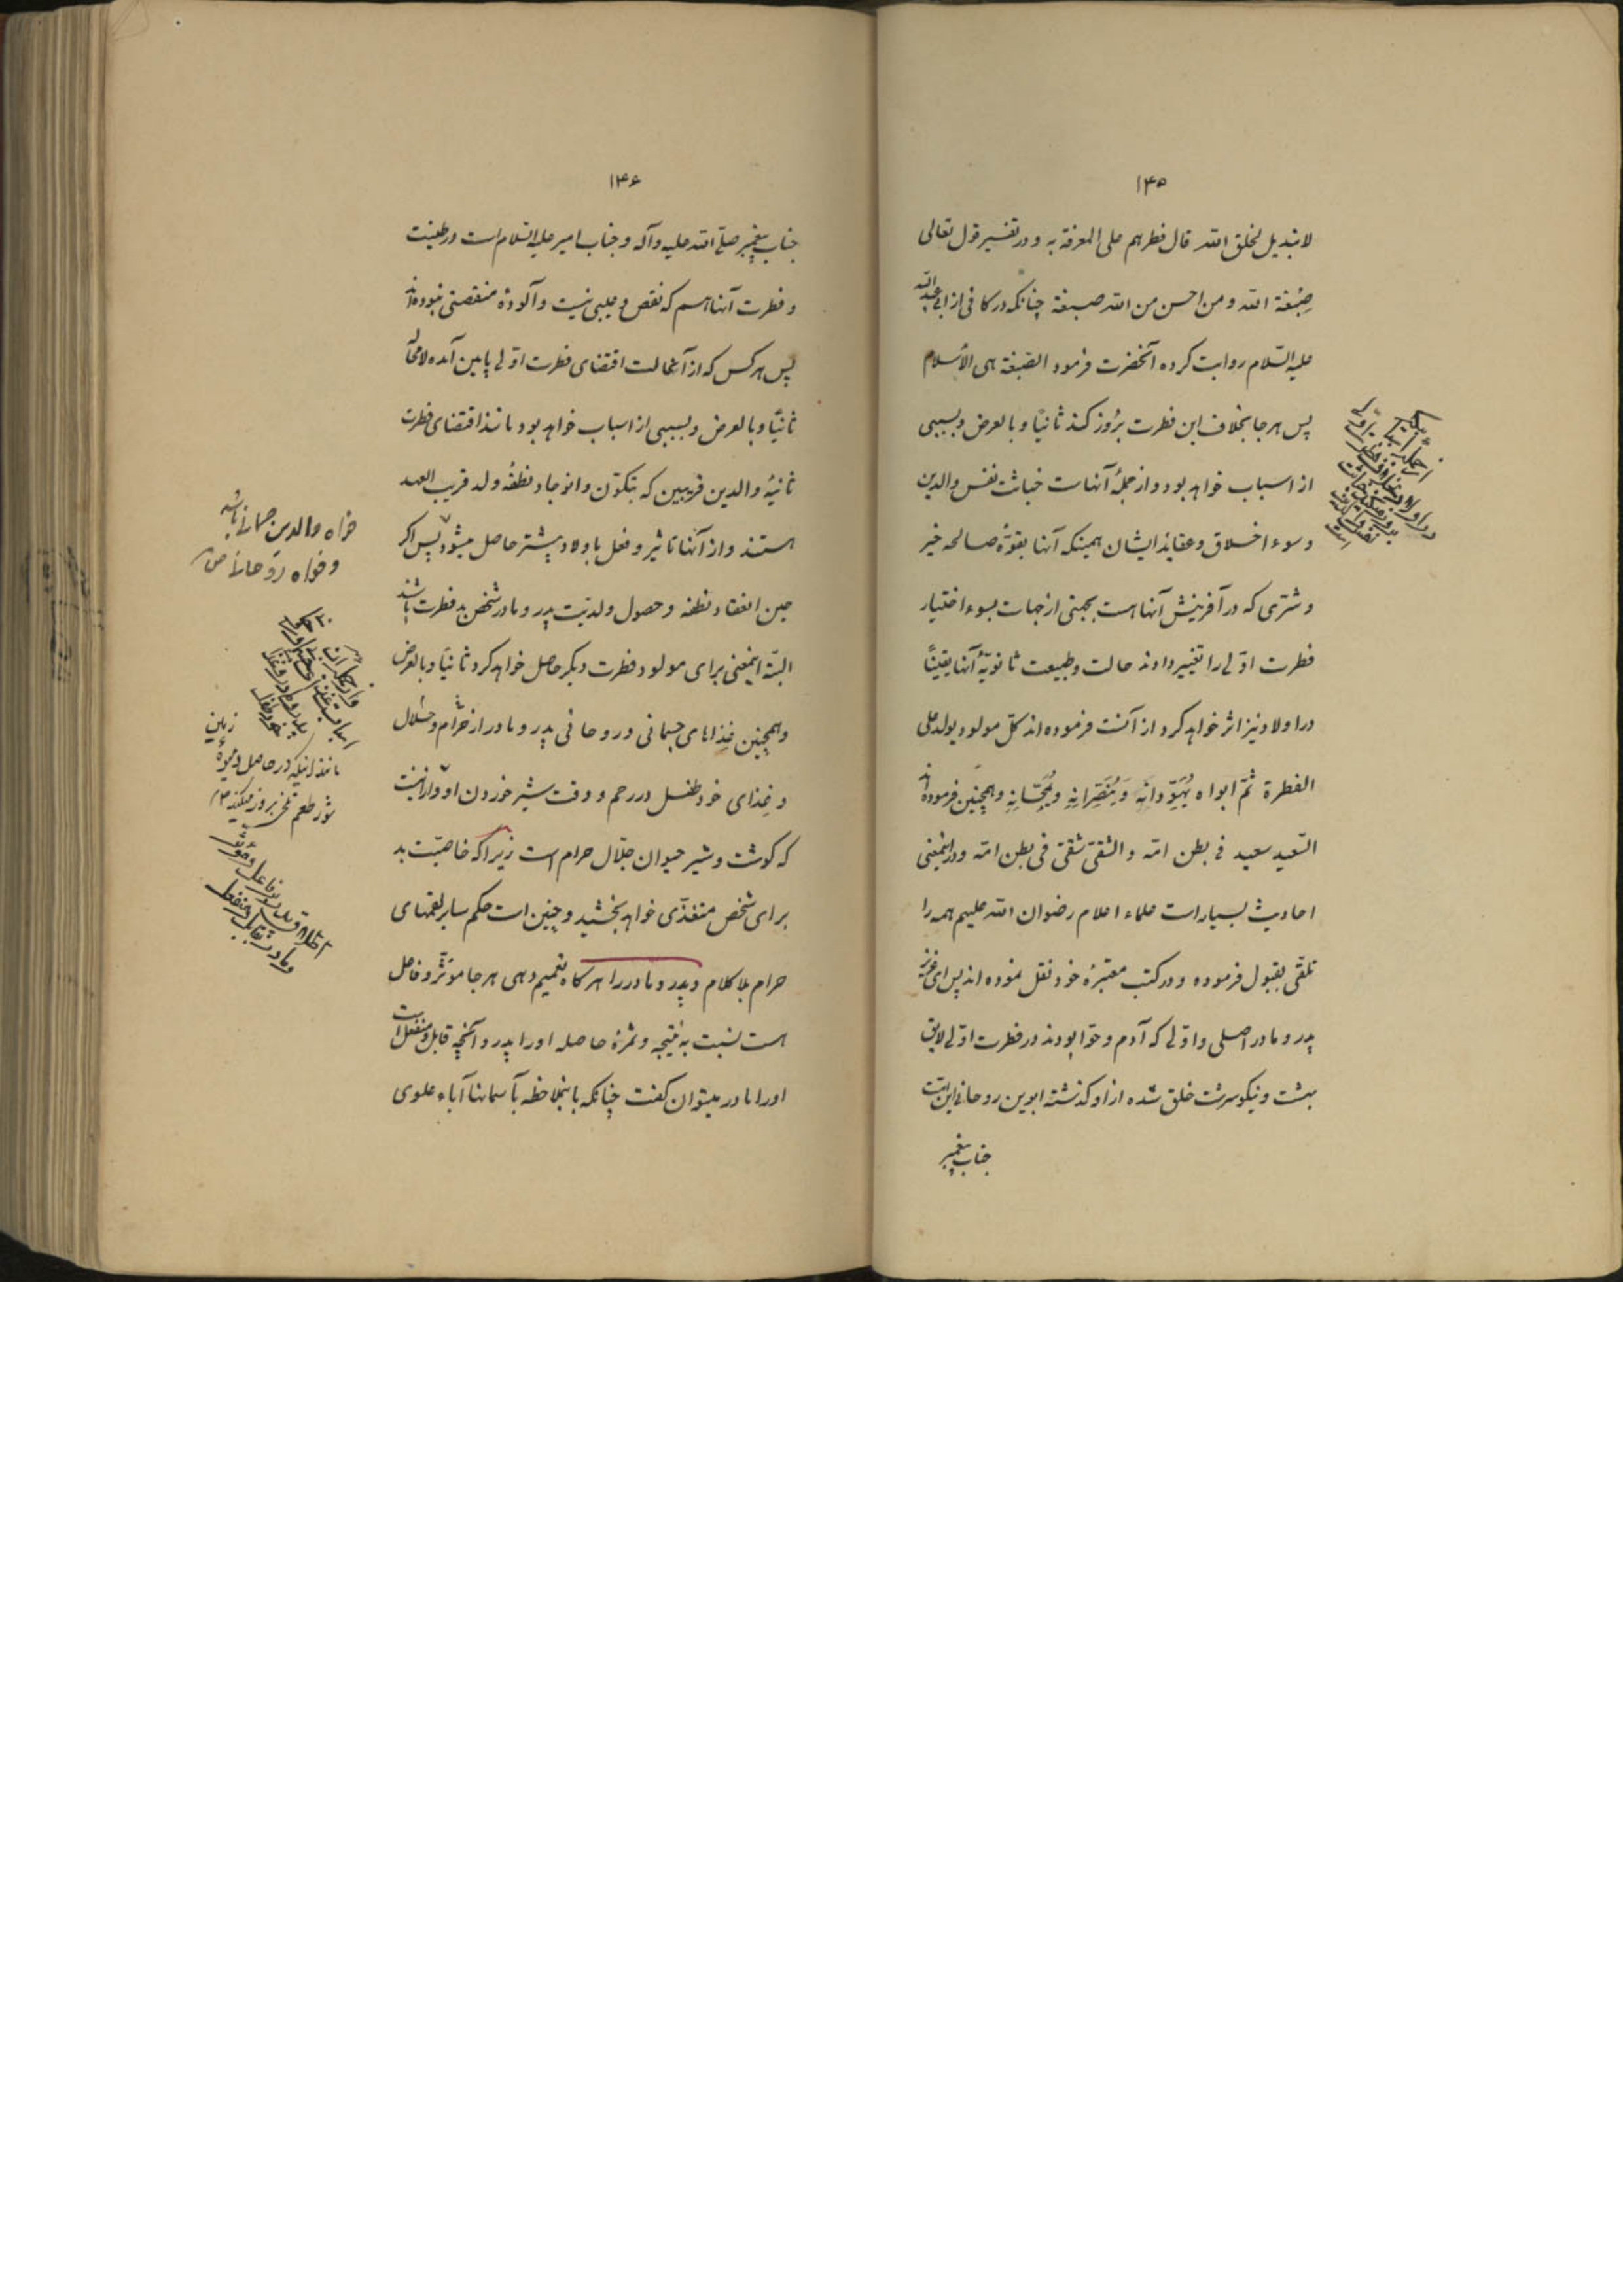 ۱۴۵
لا تبدیل لخلق الله قال فطرهم علی المعرفة به و در تفسیر قول تعالی
صبغة الله و من احسن من الله صبغة چنانکه در کافی از ابی عبد الله
علیه السّلام روایت کرده آنحضرت فرمود الصّبغة هی الأسلام
پس هر جا بخلاف این فطرت بروز کند ثانیاً و بالعرض و بسببی
از اسباب خواهد بود و از جملهٔ آنهاست خباثت نفس والدین
و سوء اخلاق و عقاید ایشان همینکه آنها بقوّهٔ صالحه خیر
و شرّی که در آفرینش آنها هست بجهتی از جهات بسوء اختیار
فطرت اوّلی را تغییر دادند حالت و طبیعت ثانویّهٔ آنها یقیناً
در اولاد نیز اثر خواهد کرد از آنست فرموده‌اند کلّ مولود یولد علی
الفطرة ثمّ ابواه یُهَوِّدانِهِ وَ یُنَصِّرانِهِ و یُمَجِّسانِهِ و همچنین فرموده‌اند
السّعید سعید فی بطن امّه و الشّقیّ شقیّ فی بطن امّه و در اینمعنی
احادیث بسیار است علماء اعلام رضوان الله علیهم همه را
تلقّی بقبول فرموده و در کتب معتبرهٔ خود نقل نموده اند پس ای عزیز
پدر و مادر اصلی و اوّلی که آدم و حوّا بودند در فطرت اوّلی لایق
بهشت و نیکو سرشت خلق شده از او گذشته ابوین روحانی این امّت
جناب پیغمبر
۱۴۶
جناب پیغمبر صلّی الله علیه و آله و جناب امیر علیه السّلام است در طینت
و فطرت آنها هم که نقص و عیبی نیست و آلودهٔ منقصتی نبوده‌اند
پس هر کس که از آنحالت اقتضای فطرت اوّلی پایین آمده لا محاله
ثانیاً و بالعرض و بسببی از اسباب خواهد بود مانند اقتضای فطرت
ثانیهٔ والدین قریبین که بتکوّن و انوجاد نطفهٔ ولد قریب العهد
هستند و از آنها تاثیر و فعل باولاد بیشتر حاصل میشود پس اگر
حین انعقاد نطفه و حصول ولدیّت پدر و مادر شخص بد فطرت باشند
البتّه اینمعنی برای مولود فطرت دیگر حاصل خواهد کرد ثانیاً و بالعرض
و همچنین غذاهای جسمانی و روحانی پدر و مادر از حرام و حلال
و غذای خود طفل در رحم و وقت شیر خوردن او و از اینست
که گوشت و شیر حیوان جلّال حرام است زیرا که خاصیّت بد
برای شخص متغذّی خواهد بخشید و چنین است حکم سایر لقمهای
حرام بلا کلام و پدر و مادر را هر گاه تعمیم دهی هر جا مؤثّر و فاعل
هست نسبت به نتیجه و ثمرهٔ حاصله او را پدر و آنچه قابل و منفعل است
او را مادر میتوان گفت چنانکه باینملاحظه بآسمانها آباء علوی
خواه والدین جسمانی باشند
و خواه روحانی
مانند اینکه در حاصل و میوهٔ
زمین
شور طعم تلخ بروز میکند
اطلاق پدر بر فاعل و مؤثر
و مادر بقابل و منفعل